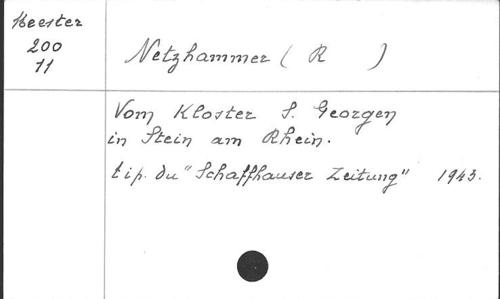 Meester
200
11
Netzhammer ( R )
Vom Kloster S. Georgen
in Stein am Rhein.
tip. du "Schaffhauser Zeitung" 1943.